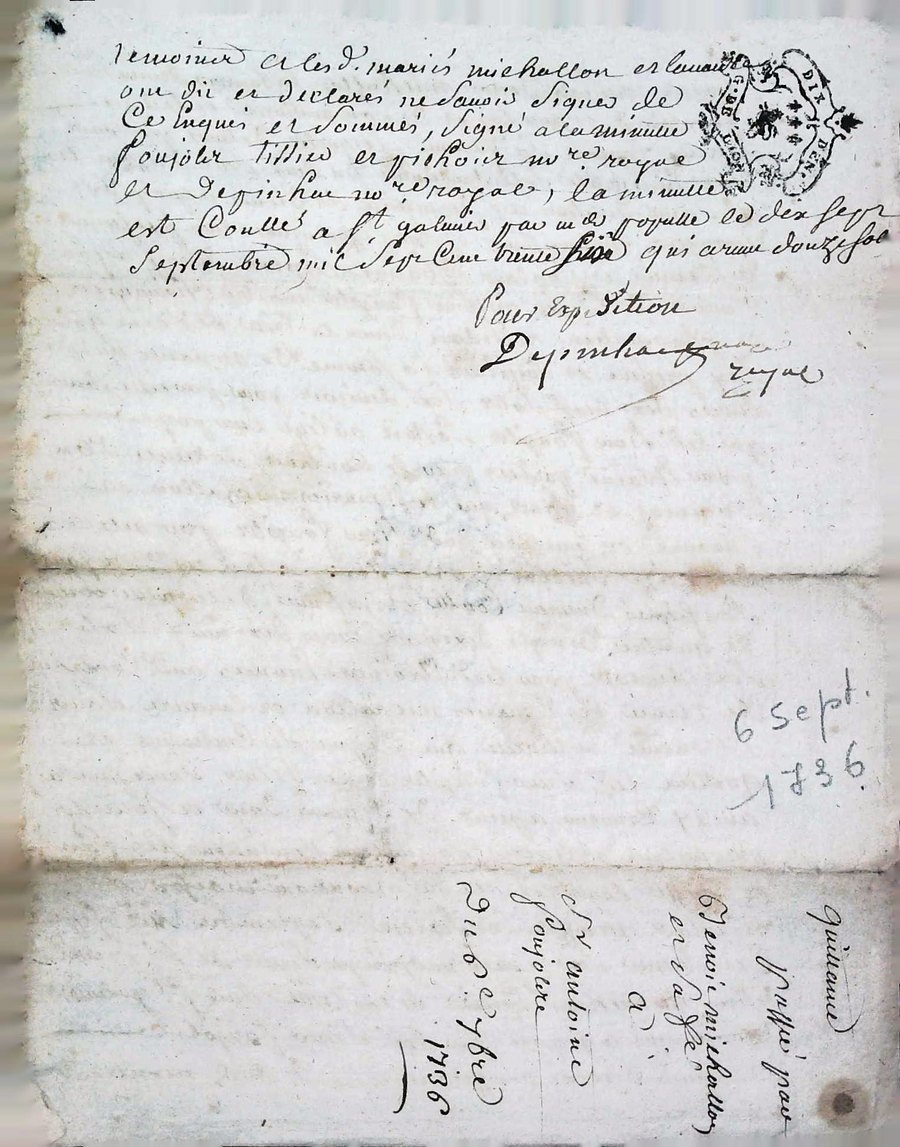 temoins et les d. mariés michallon et
ont dit et declarés ne savoir signer de
ce Enquis et sommés, signé a la minutte
poujolz tissier et pichoir no.re royal
et Depinhac no.re royal, la minutte
est Conllé a St galmier par m de populle le dix sept
Septembre mil Sept Cent trente Sixe qui a reçu douze sol
Pour Expedition
Depinhac
royal
G. DE LION
DIX DEN.
6 sept.
1736
quittance
passé par
Benoit michallon
et sa fe
a
Sr antoine
poujolz
Du 6e 7bre
1736